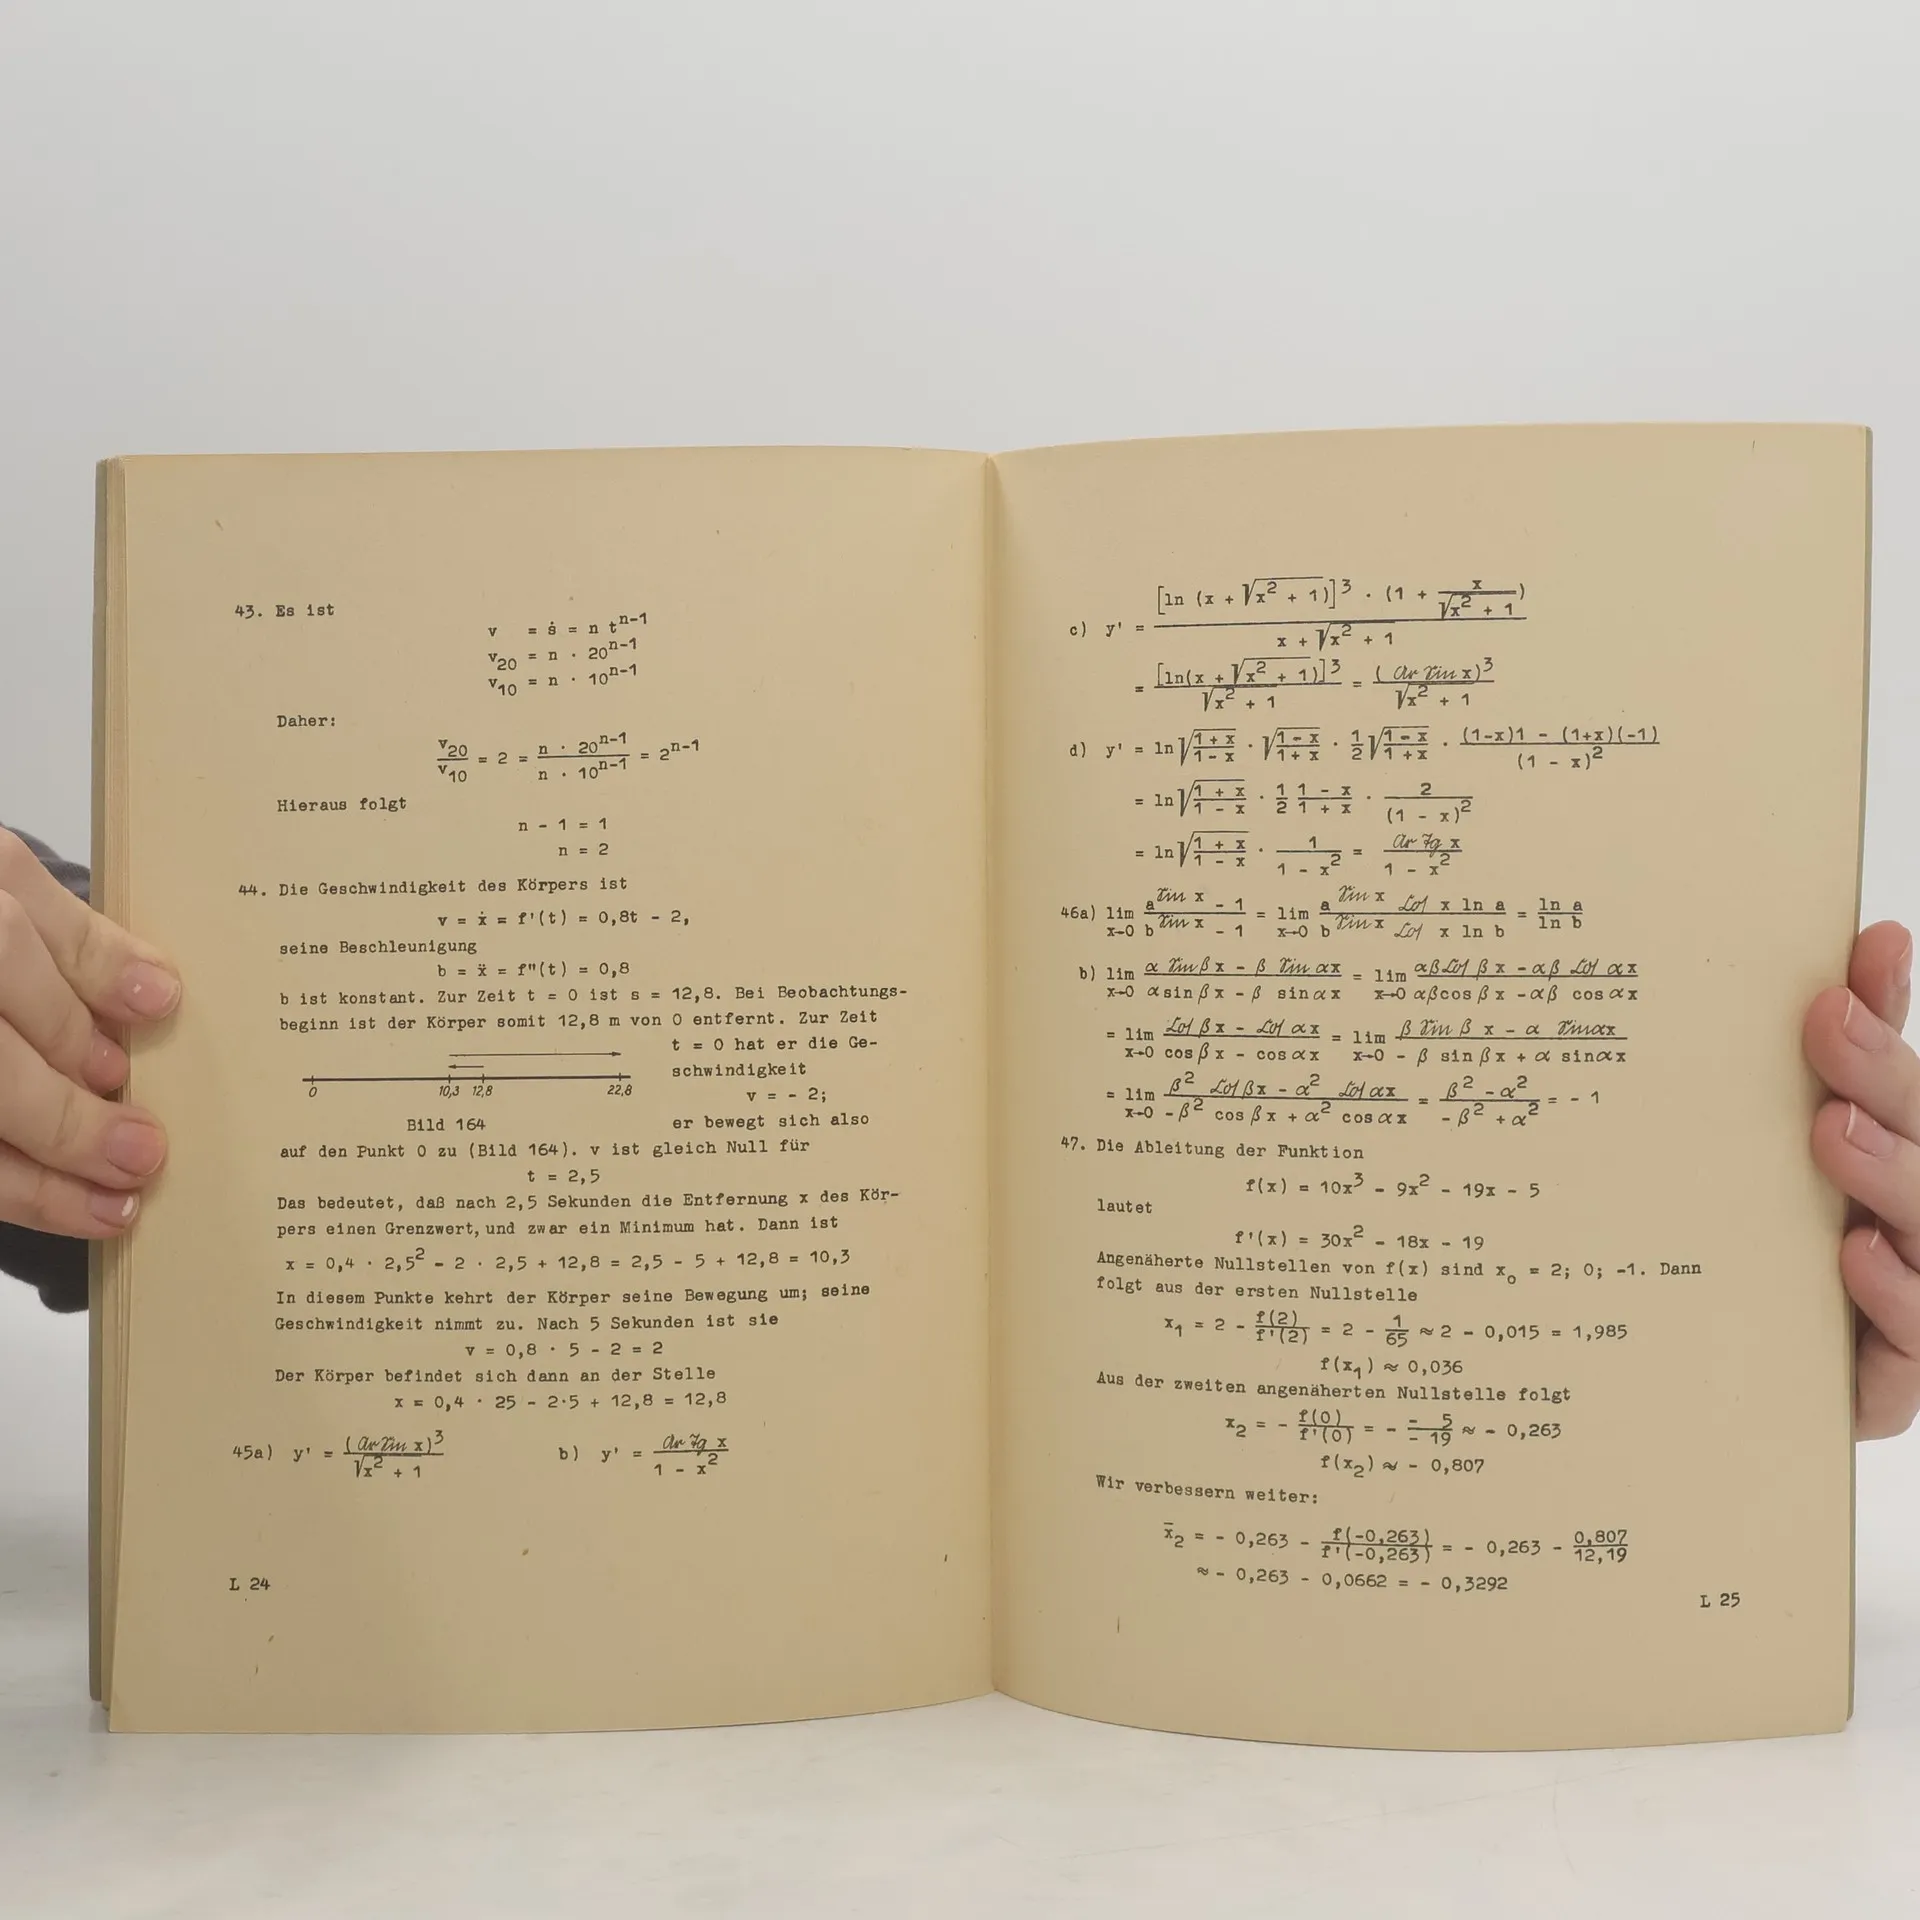 43. Es ist
v = ṡ = n t^(n-1)
v₂₀ = n · 20^(n-1)
v₁₀ = n · 10^(n-1)
Daher:
v₂₀/v₁₀ = 2 = (n · 20^(n-1))/(n · 10^(n-1)) = 2^(n-1)
Hieraus folgt
n - 1 = 1
n = 2
44. Die Geschwindigkeit des Körpers ist
v = ẋ = f'(t) = 0,8t - 2,
seine Beschleunigung
b = ẍ = f"(t) = 0,8
b ist konstant. Zur Zeit t = 0 ist s = 12,8. Bei Beobachtungs-
beginn ist der Körper somit 12,8 m von 0 entfernt. Zur Zeit
t = 0 hat er die Ge-
schwindigkeit
v = - 2;
0 10,3 12,8 22,8
Bild 164
er bewegt sich also
auf den Punkt 0 zu (Bild 164). v ist gleich Null für
t = 2,5
Das bedeutet, daß nach 2,5 Sekunden die Entfernung x des Kör-
pers einen Grenzwert, und zwar ein Minimum hat. Dann ist
x = 0,4 · 2,5² - 2 · 2,5 + 12,8 = 2,5 - 5 + 12,8 = 10,3
In diesem Punkte kehrt der Körper seine Bewegung um; seine
Geschwindigkeit nimmt zu. Nach 5 Sekunden ist sie
v = 0,8 · 5 - 2 = 2
Der Körper befindet sich dann an der Stelle
x = 0,4 · 25 - 2·5 + 12,8 = 12,8
45a) y' = (Ar Sin x)³/√(x² + 1) b) y' = (Ar Tg x)/(1 - x²)
L 24
c) y' = ([ln (x + √(x² + 1))]³ · (1 + x/√(x² + 1)))/(x + √(x² + 1))
= [ln(x + √(x² + 1))]³/√(x² + 1) = (Ar Sin x)³/√(x² + 1)
d) y' = ln√((1 + x)/(1 - x)) · √((1 - x)/(1 + x)) · 1/2 √((1 - x)/(1 + x)) · ((1-x)1 - (1+x)(-1))/(1 - x)²
= ln√((1 + x)/(1 - x)) · 1/2 (1 - x)/(1 + x) · 2/(1 - x)²
= ln√((1 + x)/(1 - x)) · 1/(1 - x²) = (Ar Tg x)/(1 - x²)
46a) lim x→0 (a^(Sin x) - 1)/(b^(Sin x) - 1) = lim x→0 (a^(Sin x) Cof x ln a)/(b^(Sin x) Cof x ln b) = ln a/ln b
b) lim x→0 (α Sin βx - β Sin αx)/(α sin βx - β sin αx) = lim x→0 (αβ Cof βx - αβ Cof αx)/(αβ cos βx - αβ cos αx)
= lim x→0 (Cof βx - Cof αx)/(cos βx - cos αx) = lim x→0 (β Sin βx - α Sin αx)/(- β sin βx + α sin αx)
= lim x→0 (β² Cof βx - α² Cof αx)/(-β² cos βx + α² cos αx) = (β² - α²)/(-β² + α²) = - 1
47. Die Ableitung der Funktion
f(x) = 10x³ - 9x² - 19x - 5
lautet
f'(x) = 30x² - 18x - 19
Angenäherte Nullstellen von f(x) sind x₀ = 2; 0; -1. Dann
folgt aus der ersten Nullstelle
x₁ = 2 - f(2)/f'(2) = 2 - 1/65 ≈ 2 - 0,015 = 1,985
f(x₁) ≈ 0,036
Aus der zweiten angenäherten Nullstelle folgt
x₂ = - f(0)/f'(0) = - (- 5)/(- 19) ≈ - 0,263
f(x₂) ≈ - 0,807
Wir verbessern weiter:
x̄₂ = - 0,263 - f(-0,263)/f'(-0,263) = - 0,263 - 0,807/12,19
≈ - 0,263 - 0,0662 = - 0,3292
L 25